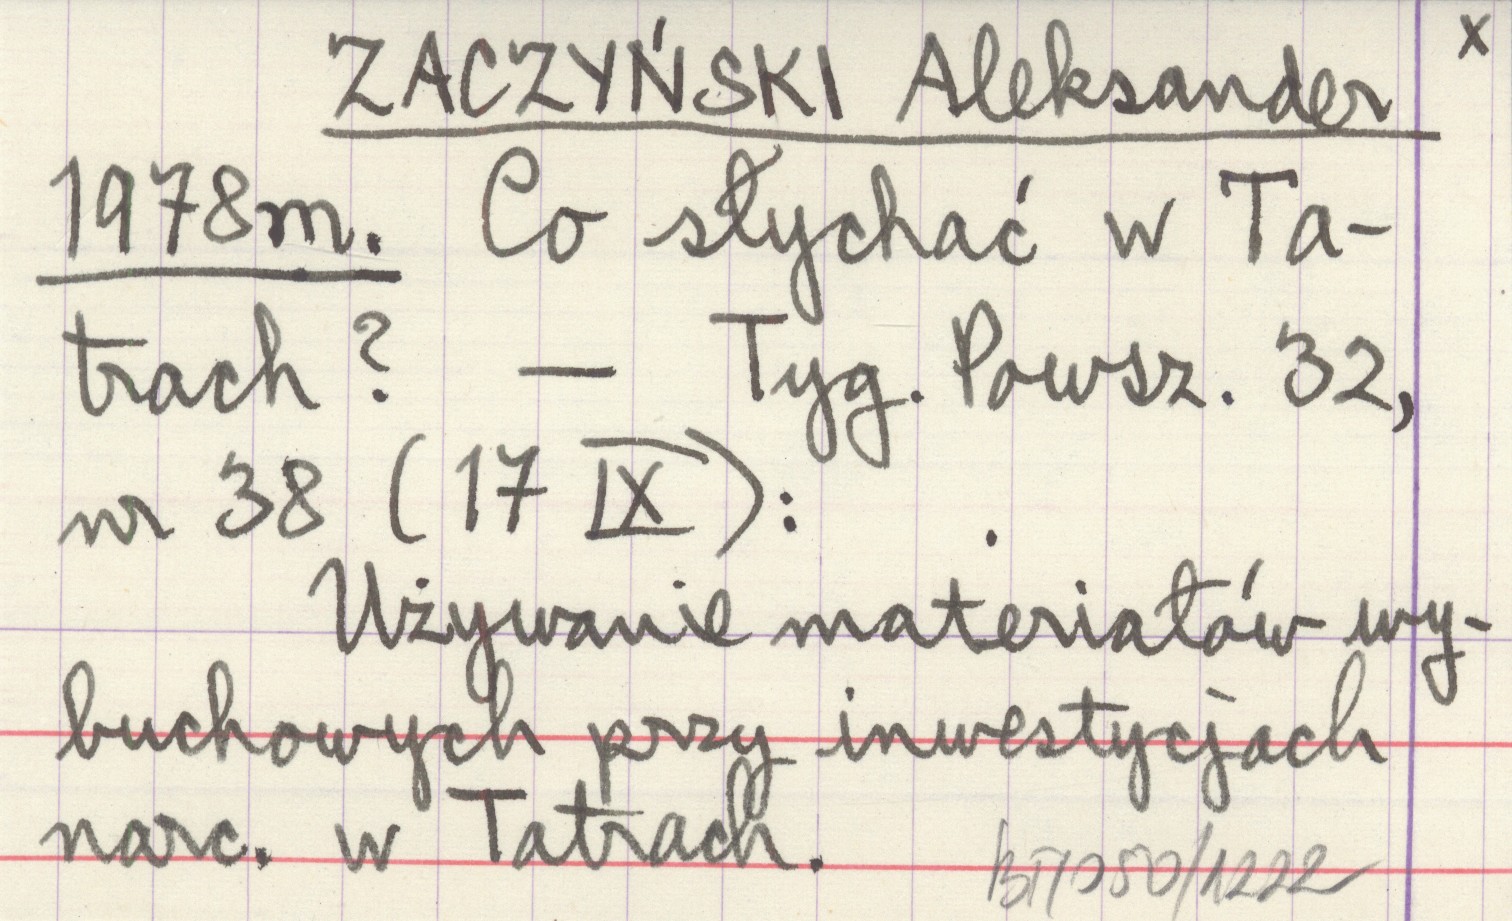 ZACZYŃSKI Aleksander x
1978m. Co słychać w Ta-
trach? — Tyg. Powsz. 32,
nr 38 (17 IX):
Używanie materiałów wy-
buchowych przy inwestycjach
narc. w Tatrach.